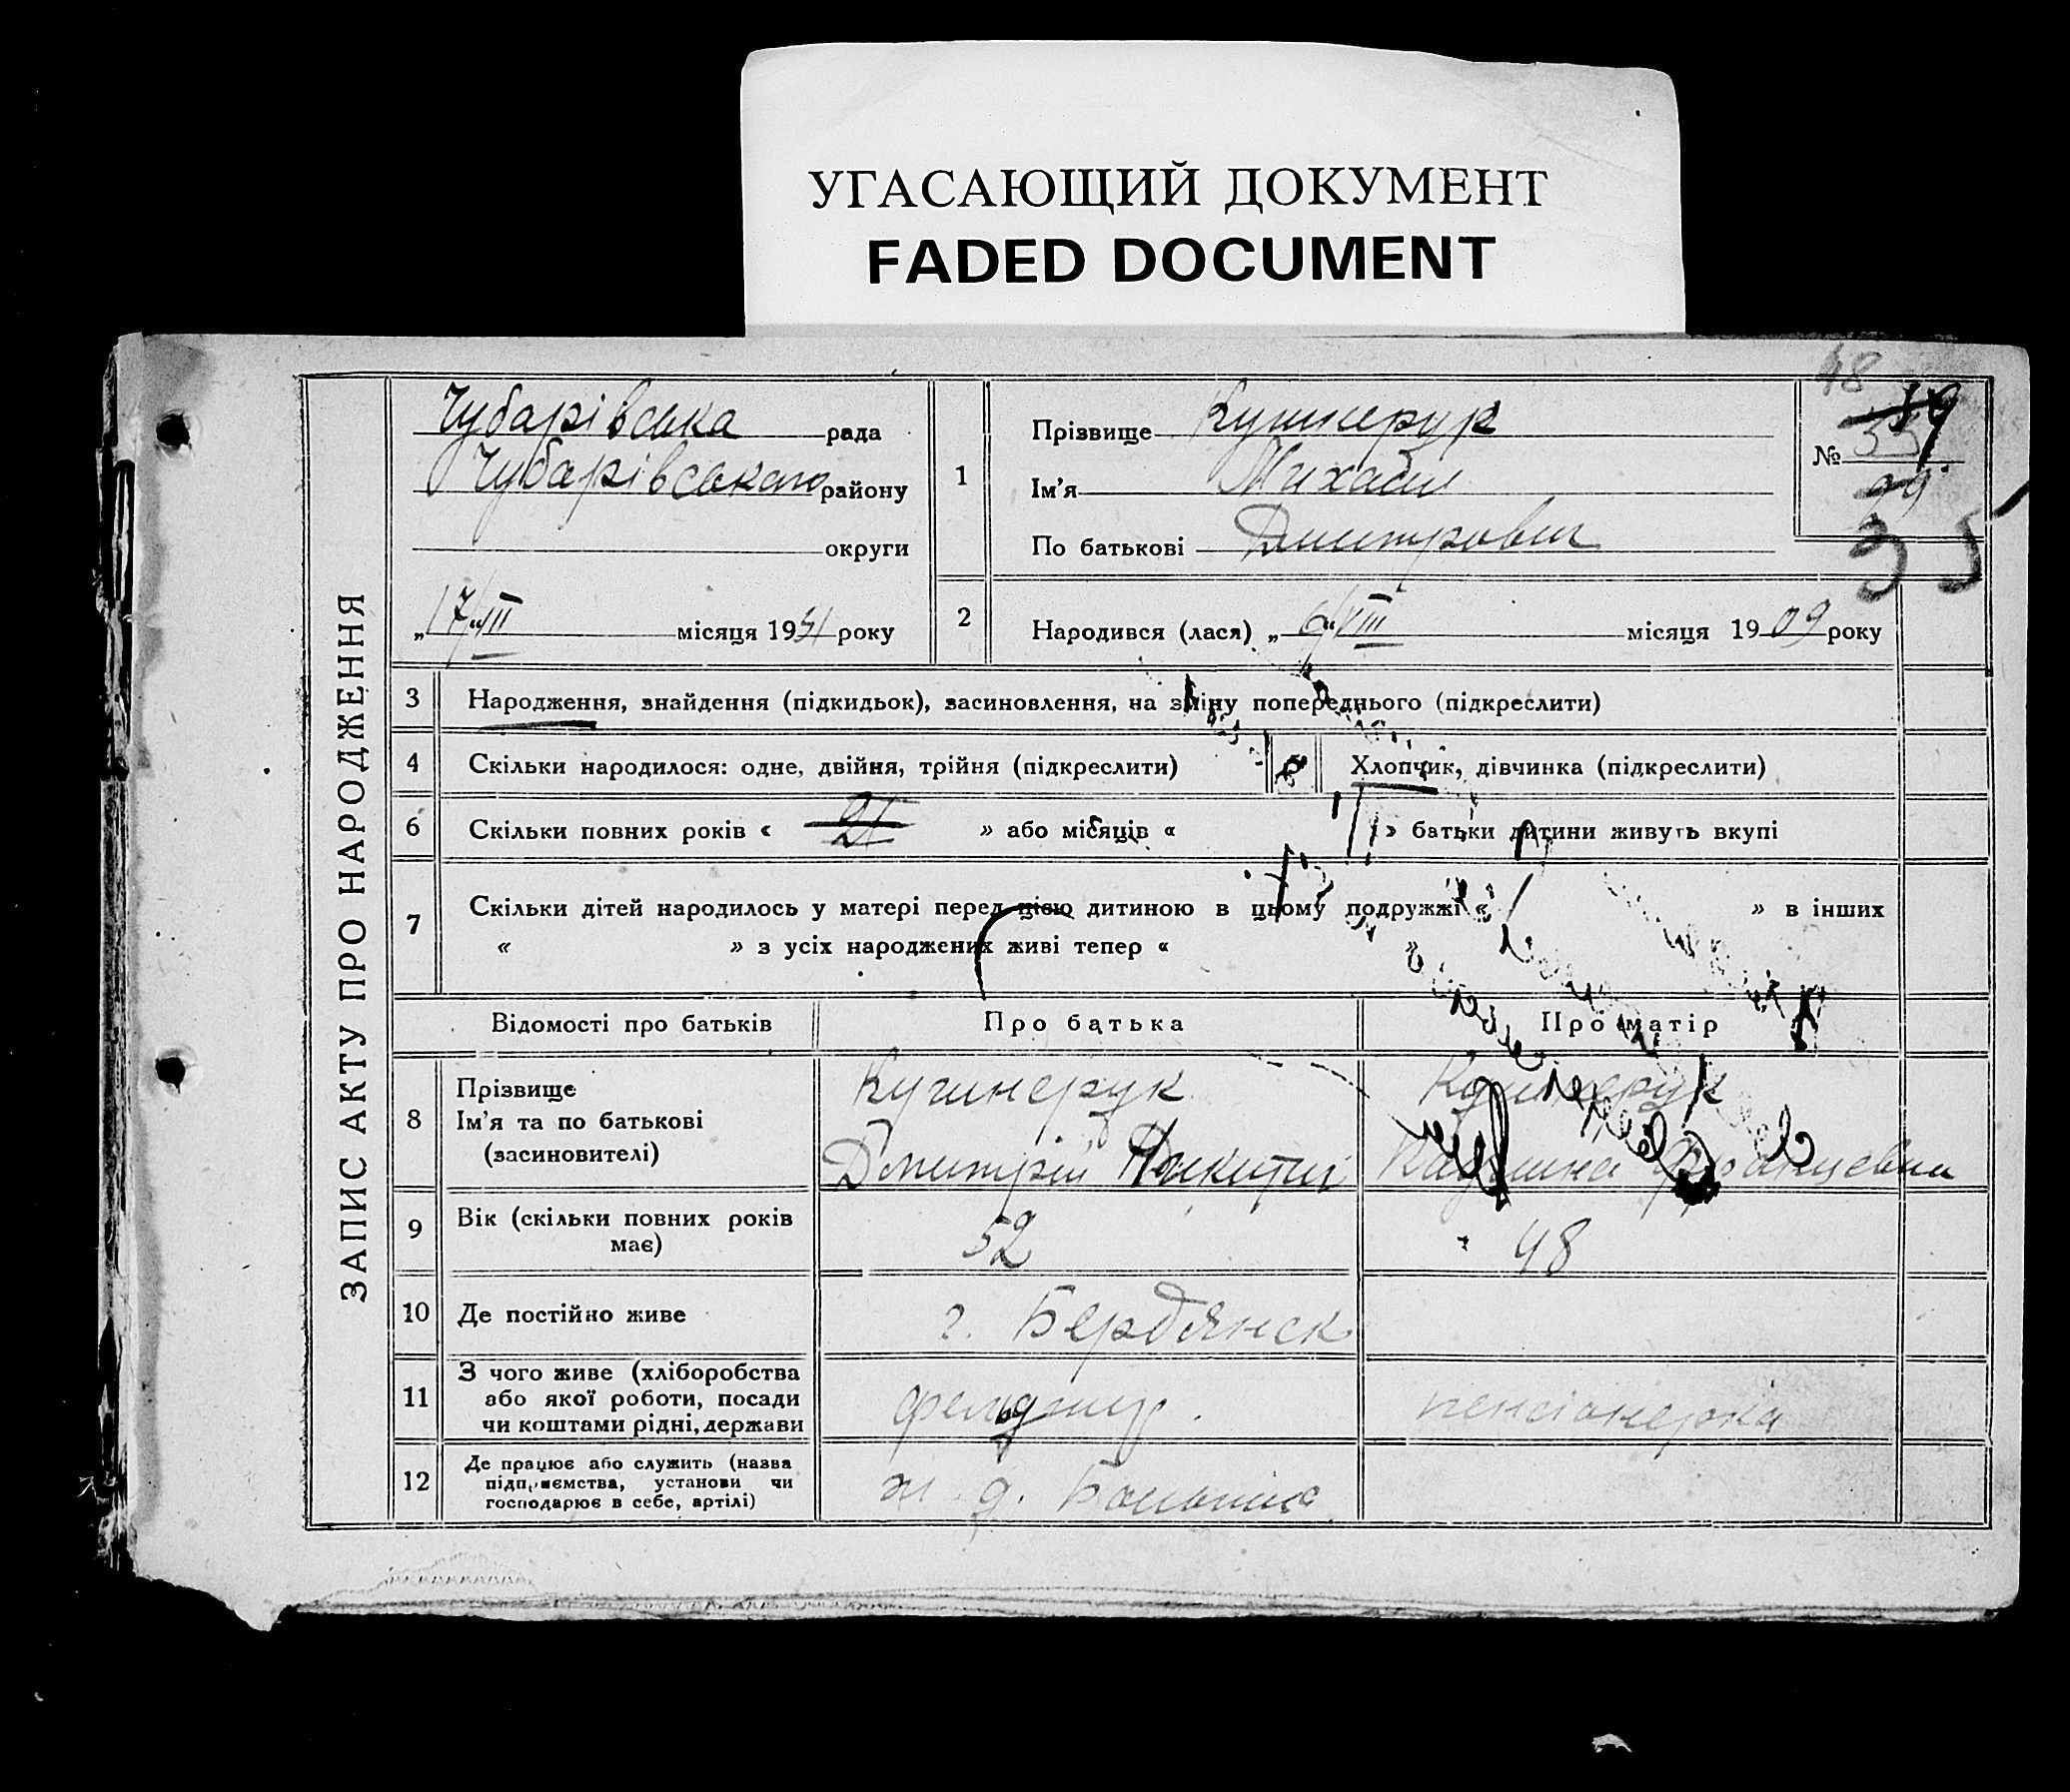 УГАСАЮЩИЙ ДОКУМЕНТ
FADED DOCUMENT
ЗАПИС АКТУ ПРО НАРОДЖЕННЯ
Чубарівська рада
Чубарівського району
округи
„17/III місяця 1931 року
48
№
35
1
Прізвище Кушнерук
Ім’я Михаил
По батькові Дмитрович
2
Народився (лася) „6/VIII місяця 1909 року
3 Народження, знайдення (підкидьок), засиновлення, на зміну попереднього (підкреслити)
4 Скільки народилося: одне, двійня, трійня (підкреслити) Хлопчик, дівчинка (підкреслити)
6 Скільки повних років « 21 » або місяців « » батьки дитини живуть вкупі
7 Скільки дітей народилось у матері перед цією дитиною в цьому подружжі « » в інших
« » з усіх народжених живі тепер « »
Відомості про батьків Про батька Про матір
8 Прізвище Кушнерук Кушнерук
Ім’я та по батькові
(засиновителі) Дмитрій
9 Вік (скільки повних років має) 52 48
10 Де постійно живе г. Бердянск
11 З чого живе (хліборобства
або якої роботи, посади
чи коштами рідні, держави фельдшер. пенсіонерка
12 Де працює або служить (назва
підприємства, установи чи
господарює в себе, артілі) ж. д.